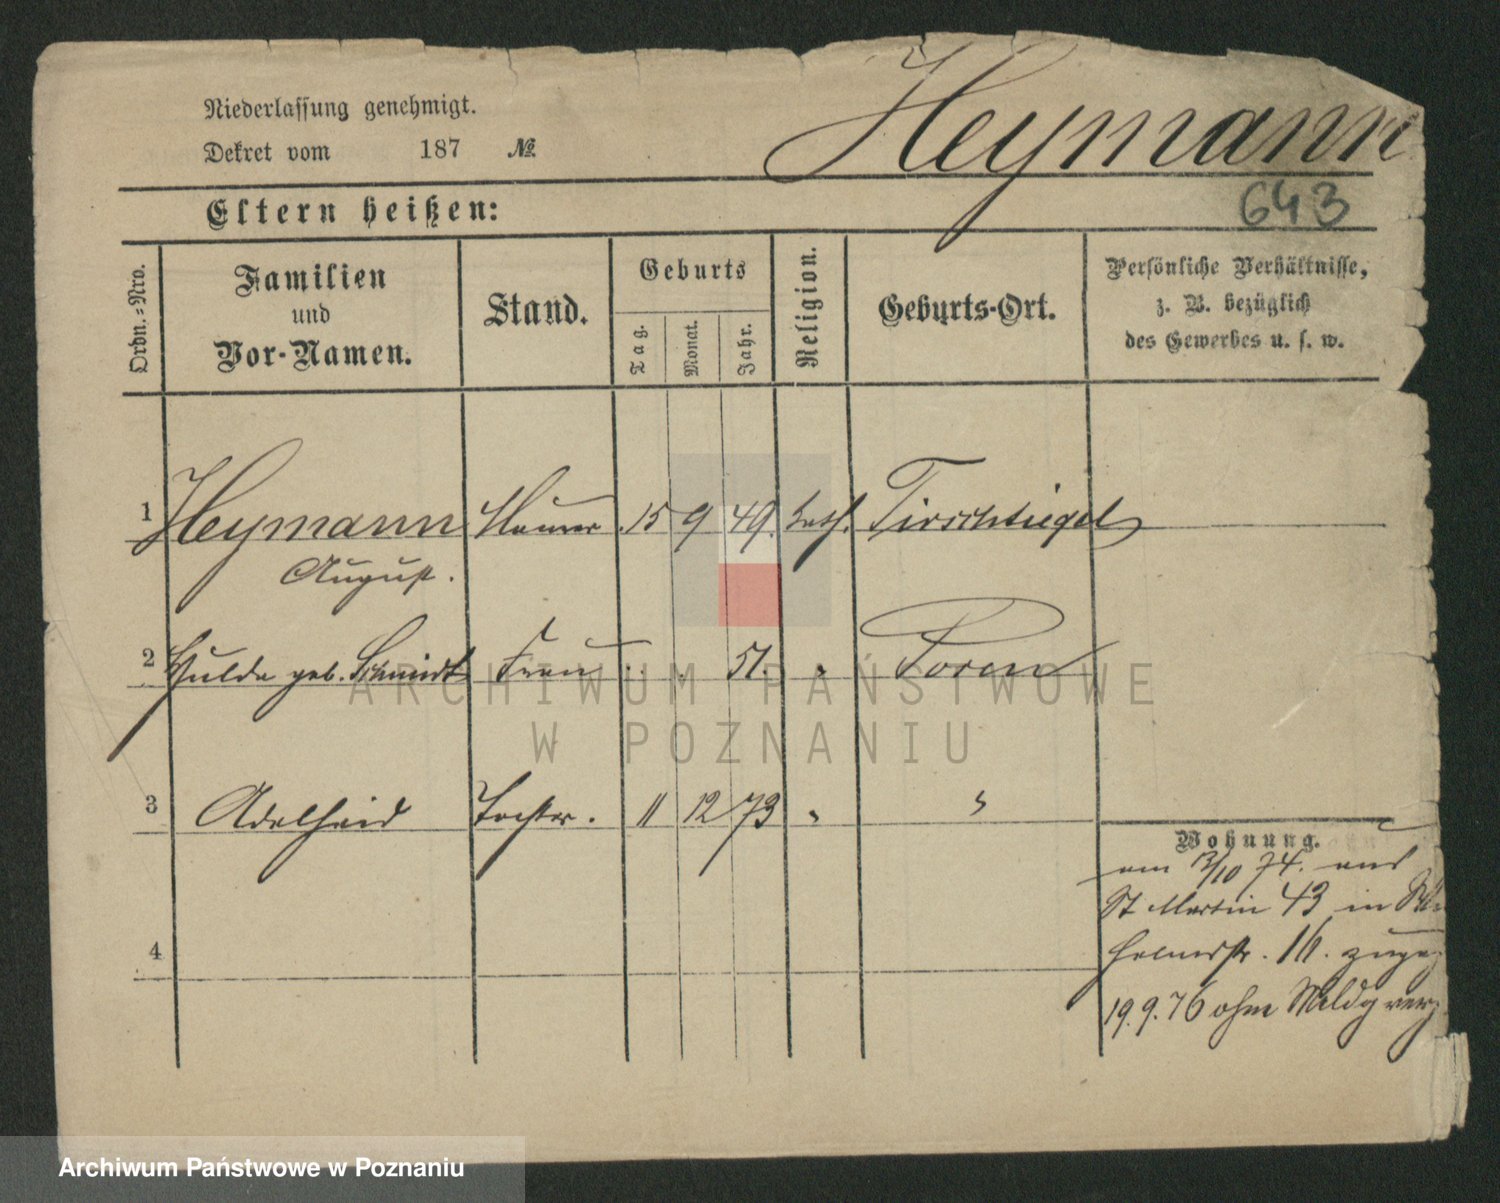 Niederlassung genehmigt.
Dekret vom 187 №
Heymann
643
Eltern heißen:
Ordn.-Nro.
Familien
und
Vor-Namen.
Stand.
Geburts
Tag.
Monat.
Jahr.
Religion.
Geburts-Ort.
Persönliche Verhältnisse,
z. B. bezüglich
des Gewerbes u. s. w.
1 Heymann Maurer 15 9 49. kath. Tirschtiegel
August.
2 Hulda geb. Schmidt Frau . . 51. " Posen
3 Adelheid Tochter. 11 12 73 " "
4
Wohnung.
am 13/10 74. aus
St Martin 43 in
16. zugez
19.9.76 ohne Meldg verz
ARCHIWUM PAŃSTWOWE
W POZNANIU
Archiwum Państwowe w Poznaniu